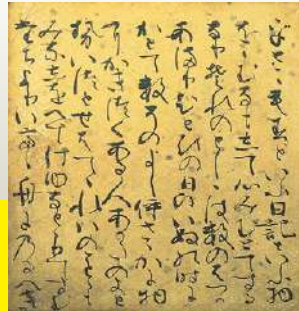 をとこもすといふ日記といふ物
をゝむなもして心みむとてする
なりそれのとしのしはすのはつか
あまりひとひの日のいぬの時に
かとてすそのよしいさゝかに物
にかきつくある人あかたのよと
せいつとせはてゝれいのことゝも
みなしをへてけゆなとゝりて
たちよりいてゝ舟にのるへき